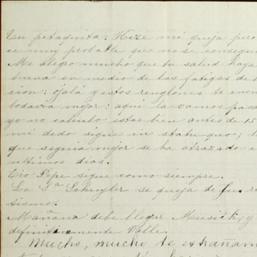 En posdata: Hize mi queja pero
es muy probable que no se consegui
Me alegro mucho que tu salud haya
bueno en medio de las fatigas de
sion: ojalá y estos renglones te encu
todavía mejor: aquí la vamos pasa
yo no calculo estar bien antes de 15
mi dedo sigue in statu quo;
que seguía mejor se ha atrazado
últimos días.
Tío Pepe sigue como siempre.
La Sra Schuyler se queja de
sismo.
Mañana debe llegar
definitivamente Valle.
Mucho, mucho te extrañam